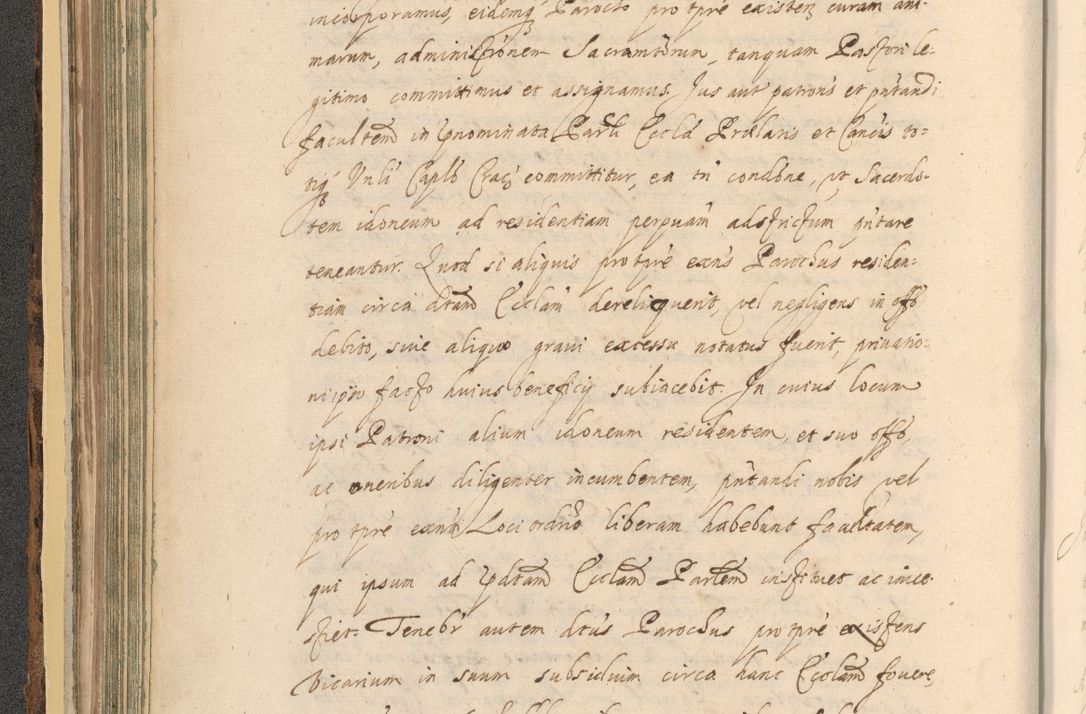 incorporamus, eidemq3 Parocho pro tpre existen3 curam ani-
marum, administrõnem Sacramtorum, tanquam Pastori le-
gitimo committimus et assignamus. Jus aut patronũs et pñtandi
facultem in pnominata Parli Eccla Prælatis et Cancis to-
tiq3 Vnli Caplo Crac committitur, ea tñ condõne, ut Sacerdo-
tem idoneum ad residentiam perpuam adstrictum pñtare
teneantur. Quod si aliquis pro tpre exñs Parochus residen-
tiam circa dtam Ecclam derelinquerit, vel negligens in offo
debito, siue aliquo graui excessu notatus fuerit, priuatio-
ni ipso facto huius beneficij subiacebit. In cuius locum
ipsi Patroni alium idoneum residentem, et suo offo
ac oneribus diligenter incumbentem, pñtandi nobis vel
pro tpre exñti Loci ordrio liberam habebunt facultatem,
qui ipsum ad pdtam Ecclam Parlem instituet ac inue-
stiet. Tenebr autem dtus Parochus pro tpre existens
Vicarium in suum subsidium circa hanc Ecclam fouere,